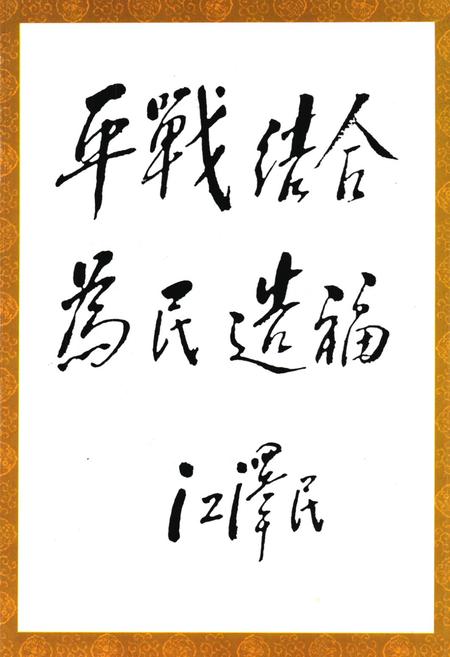 平戰结合
為民造福
江澤民